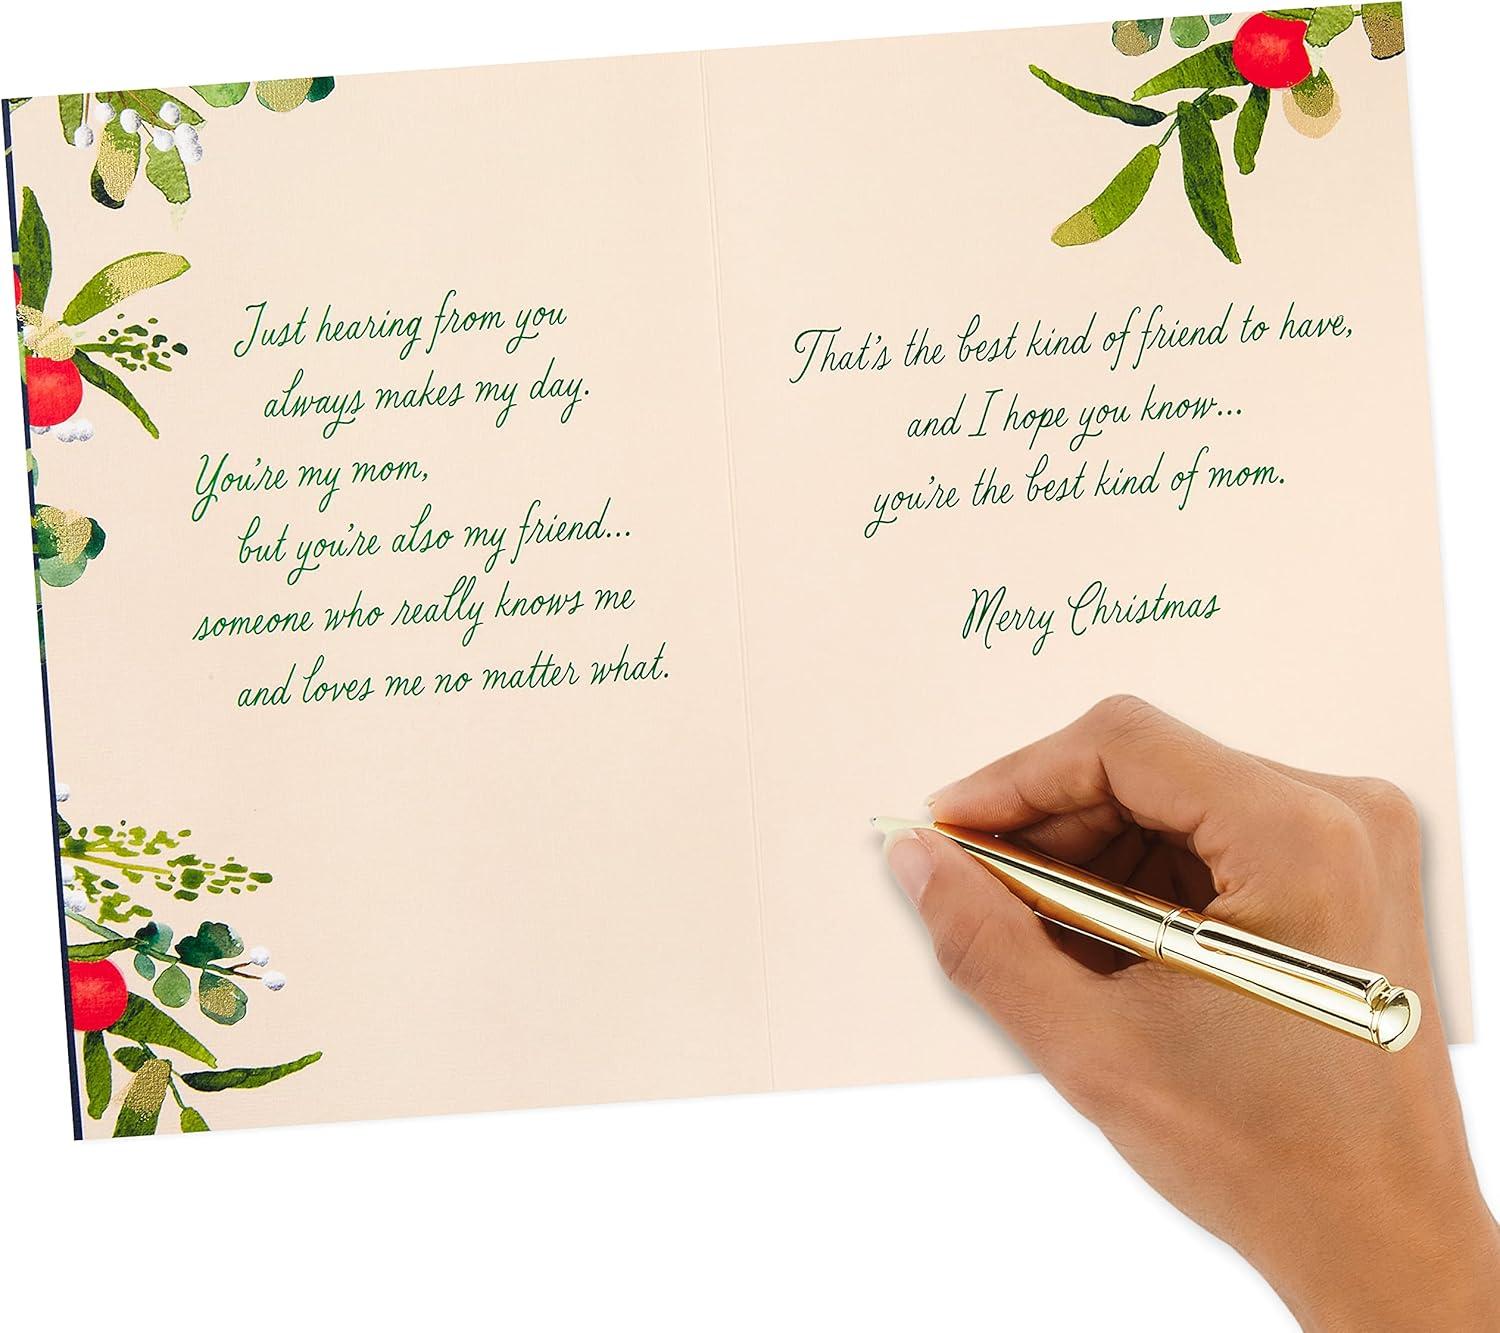 Just hearing from you
always makes my day.
You're my mom,
but you're also my friend...
someone who really knows me
and loves me no matter what.
That's the best kind of friend to have,
and I hope you know...
you're the best kind of mom.
Merry Christmas